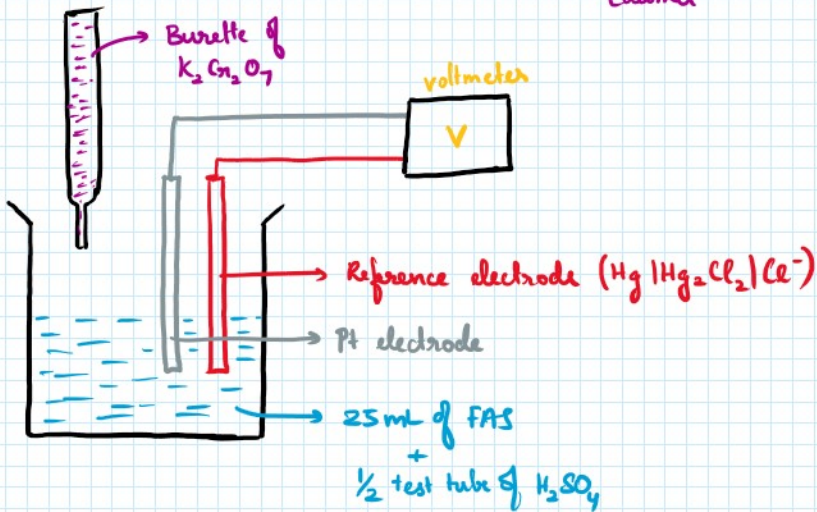 Burette of
K₂Cr₂O₇
voltmeter
V
Reference electrode (Hg|Hg₂Cl₂|Cl⁻)
Pt electrode
25 mL of FAS
+
½ test tube of H₂SO₄